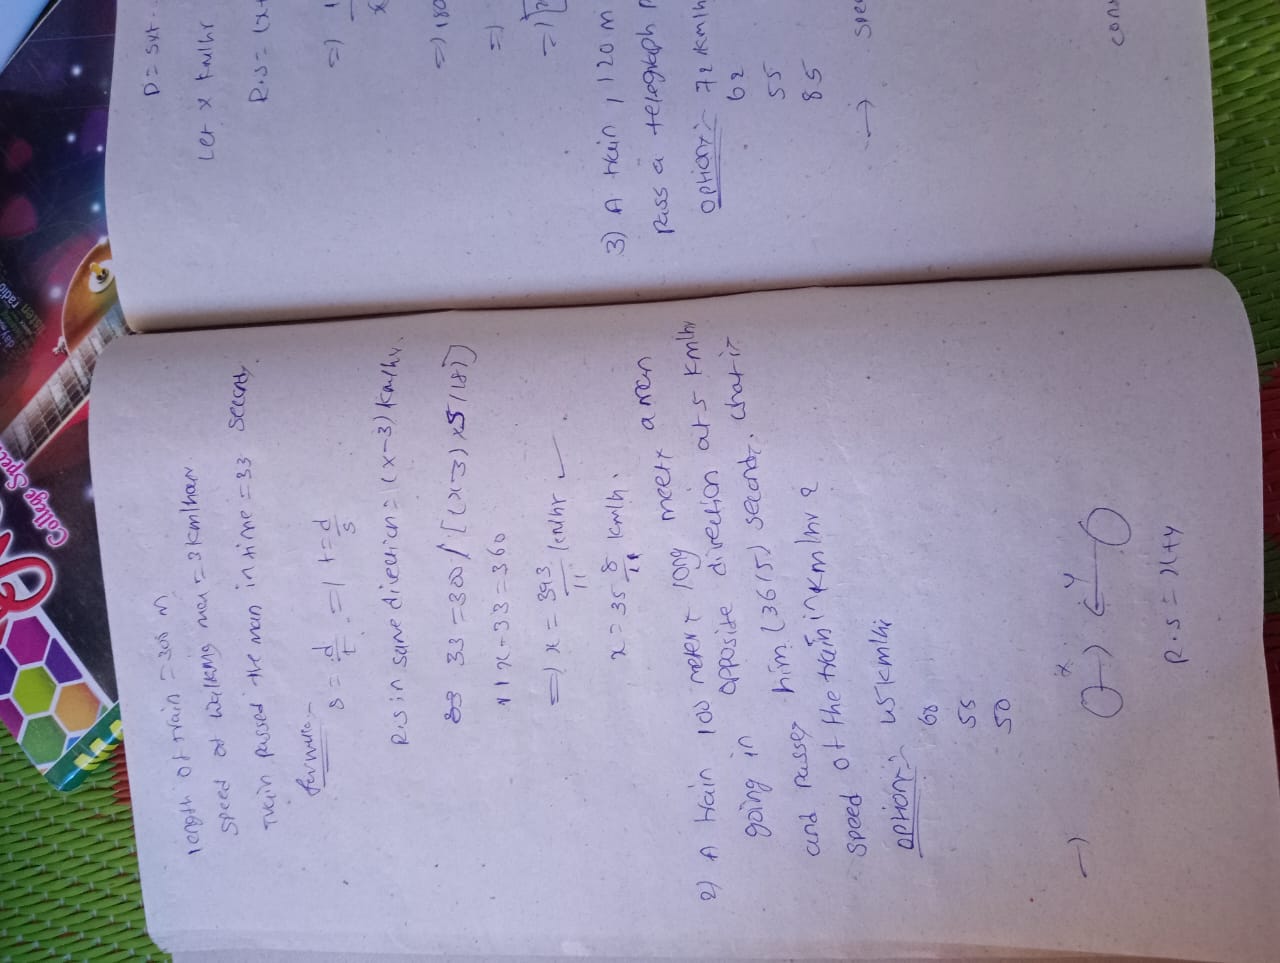 length of train = 300 m
speed of walking man = 3km/hour
Train passed the man in time = 33 seconds
formula:-
s = d/t = ) t = d/s
R.s in same direction = (x-3) km/hr.
33 = 300/[(x-3)x5/18)]
11x-33 = 360
=) x = 393/11 km/hr ✓
x = 35 8/11 km/h.
2) A train 100 meters long meets a man
going in opposite direction at 5 km/hr
and passes him (36/5) seconds. what is
speed of the train in km/hr ?
options:- 45km/hr
60
55
50
-)
x
y
R.s = x+y
D = sxt
Let x km/hr
R.s = (x+
=) 1
x
=) 180
=)
=)
3) A train, 120 m
pass a telegraph p
options:- 72 km/h
62
55
85
-) spee
con
College Spec
listen radio